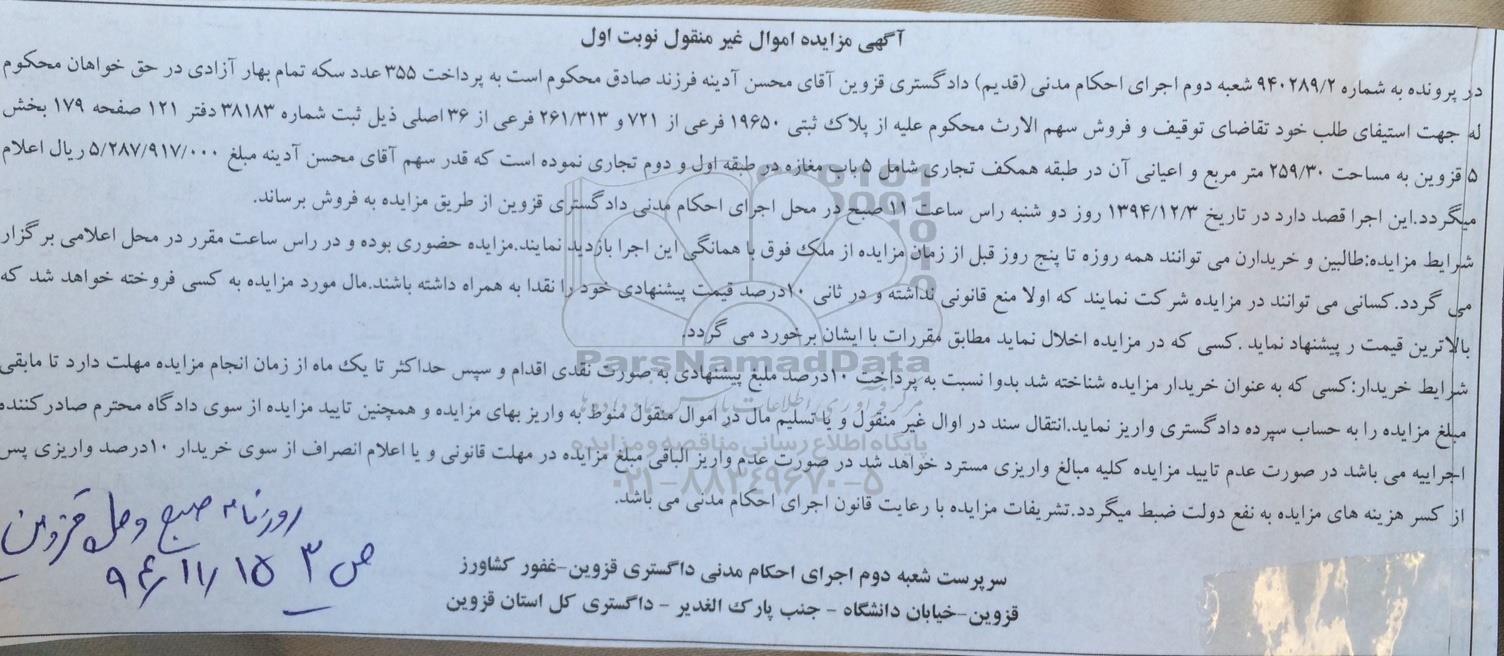 آگهی مزایده اموال غیر منقول نوبت اول
در پرونده به شماره ۹۴۰۲۸۹/۲ شعبه دوم اجرای احکام مدنی (قدیم) دادگستری قزوین آقای محسن آدینه فرزند صادق محکوم است به پرداخت ۳۵۵ عدد سکه تمام بهار آزادی در حق خواهان محکوم
له جهت استیفای طلب خود تقاضای توقیف و فروش سهم الارث محکوم علیه از پلاک ثبتی ۱۹۶۵۰ فرعی از ۷۲۱ و ۲۶۱/۳۱۳ فرعی از ۳۶ اصلی ذیل ثبت شماره ۳۸۱۸۳ دفتر ۱۲۱ صفحه ۱۷۹ بخش
۵ قزوین به مساحت ۲۵۹/۳۰ متر مربع و اعیانی آن در طبقه همکف تجاری شامل ۵ باب مغازه در طبقه اول و دوم تجاری نموده است که قدر سهم آقای محسن آدینه مبلغ ۵/۲۸۷/۹۱۷/۰۰۰ ریال اعلام
میگردد.این اجرا قصد دارد در تاریخ ۱۳۹۴/۱۲/۳ روز دو شنبه راس ساعت ۱۱ صبح در محل اجرای احکام مدنی دادگستری قزوین از طریق مزایده به فروش برساند.
شرایط مزایده:طالبین و خریدارن می توانند همه روزه تا پنج روز قبل از زمان مزایده از ملک فوق با همانگی این اجرا بازدید نمایند.مزایده حضوری بوده و در راس ساعت مقرر در محل اعلامی برگزار
می گردد.کسانی می توانند در مزایده شرکت نمایند که اولا منع قانونی نداشته و در ثانی ۱۰درصد قیمت پیشنهادی خود را نقدا به همراه داشته باشند.مال مورد مزایده به کسی فروخته خواهد شد که
بالاترین قیمت ر پیشنهاد نماید .کسی که در مزایده اخلال نماید مطابق مقررات با ایشان برخورد می گردد.
شرایط خریدار:کسی که به عنوان خریدار مزایده شناخته شد بدوا نسبت به پرداخت ۱۰درصد ملبغ پیشنهادی به صورت نقدی اقدام و سپس حداکثر تا یک ماه از زمان انجام مزایده مهلت دارد تا مابقی
مبلغ مزایده را به حساب سپرده دادگستری واریز نماید.انتقال سند در اوال غیر منقول و یا تسلیم مال در اموال منقول منوط به واریز بهای مزایده و همچنین تایید مزایده از سوی دادگاه محترم صادرکننده
اجراییه می باشد در صورت عدم تایید مزایده کلیه مبالغ واریزی مسترد خواهد شد در صورت عدم واریز الباقی مبلغ مزایده در مهلت قانونی و یا اعلام انصراف از سوی خریدار ۱۰درصد واریزی پس
از کسر هزینه های مزایده به نفع دولت ضبط میگردد.تشریفات مزایده با رعایت قانون اجرای احکام مدنی می باشد.
سرپرست شعبه دوم اجرای احکام مدنی داگستری قزوین-غفور کشاورز
قزوین-خیابان دانشگاه - جنب پارک الغدیر - داگستری کل استان قزوین
روزنامه صبح وصل قزوین
ص ۳ ۹۴/۱۱/۱۵
ParsNamadData
پایگاه اطلاع رسانی مناقصه و مزایده
۰۲۱-۸۸۳۴۹۶۷۰-۵